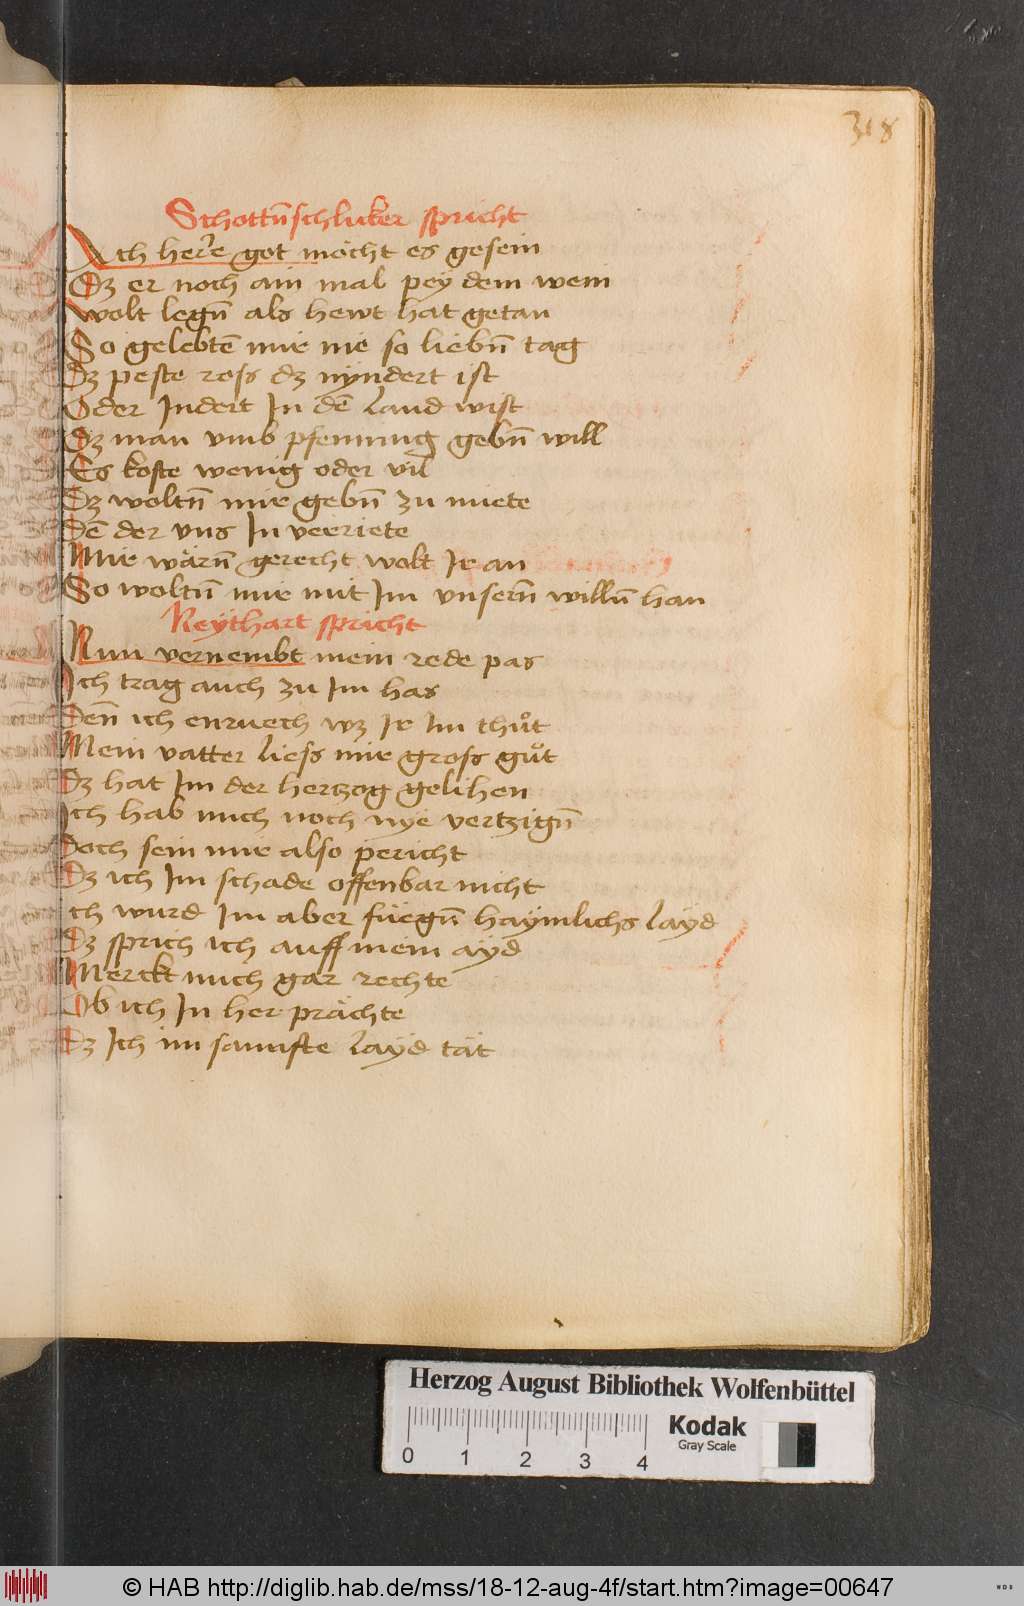 318
Schottn̄schlucker spricht
Ach herre got möcht es gesein
Dz er noch ain mal pey dem wein
wolt legn̄ als hewt hat getan
So gelebtē mir nie so liebn̄ tag
Dz peste ross dz nÿndert ist
Oder Jndert Jn dē land wist
Dz man vmb pfenning gebn̄ will
Es koste wenig oder vil
Dz woltn̄ mir gebn̄ zu miete
Dē der vns Jn verriete
Mir wärn̄ gerecht wolt Jr an
So woltn̄ mir mit Jm vnsern̄ willn̄ han
Neÿthart spricht
Nun vernembt mein rede pas
Ich trag auch zu Jm has
Denn̄ ich enruech wz Jr Im thůt
Mein vatter liess mir gross gůt
Dz hat Jm der hertzog gelihen
Ich hab mich noch nye vertzign̄
Doch sein mir also pericht
Dz ich Jm schade offenbar nicht
Ich wurd Im aber füegn̄ haÿmlichs laÿd
Dz sprich ich auff mein aÿd
Merckt mich gar rechte
Ob ich Jn her prächte
Dz Ich im samfte laÿd tät
Herzog August Bibliothek Wolfenbüttel
Kodak
Gray Scale
0 1 2 3 4
© HAB http://diglib.hab.de/mss/18-12-aug-4f/start.htm?image=00647